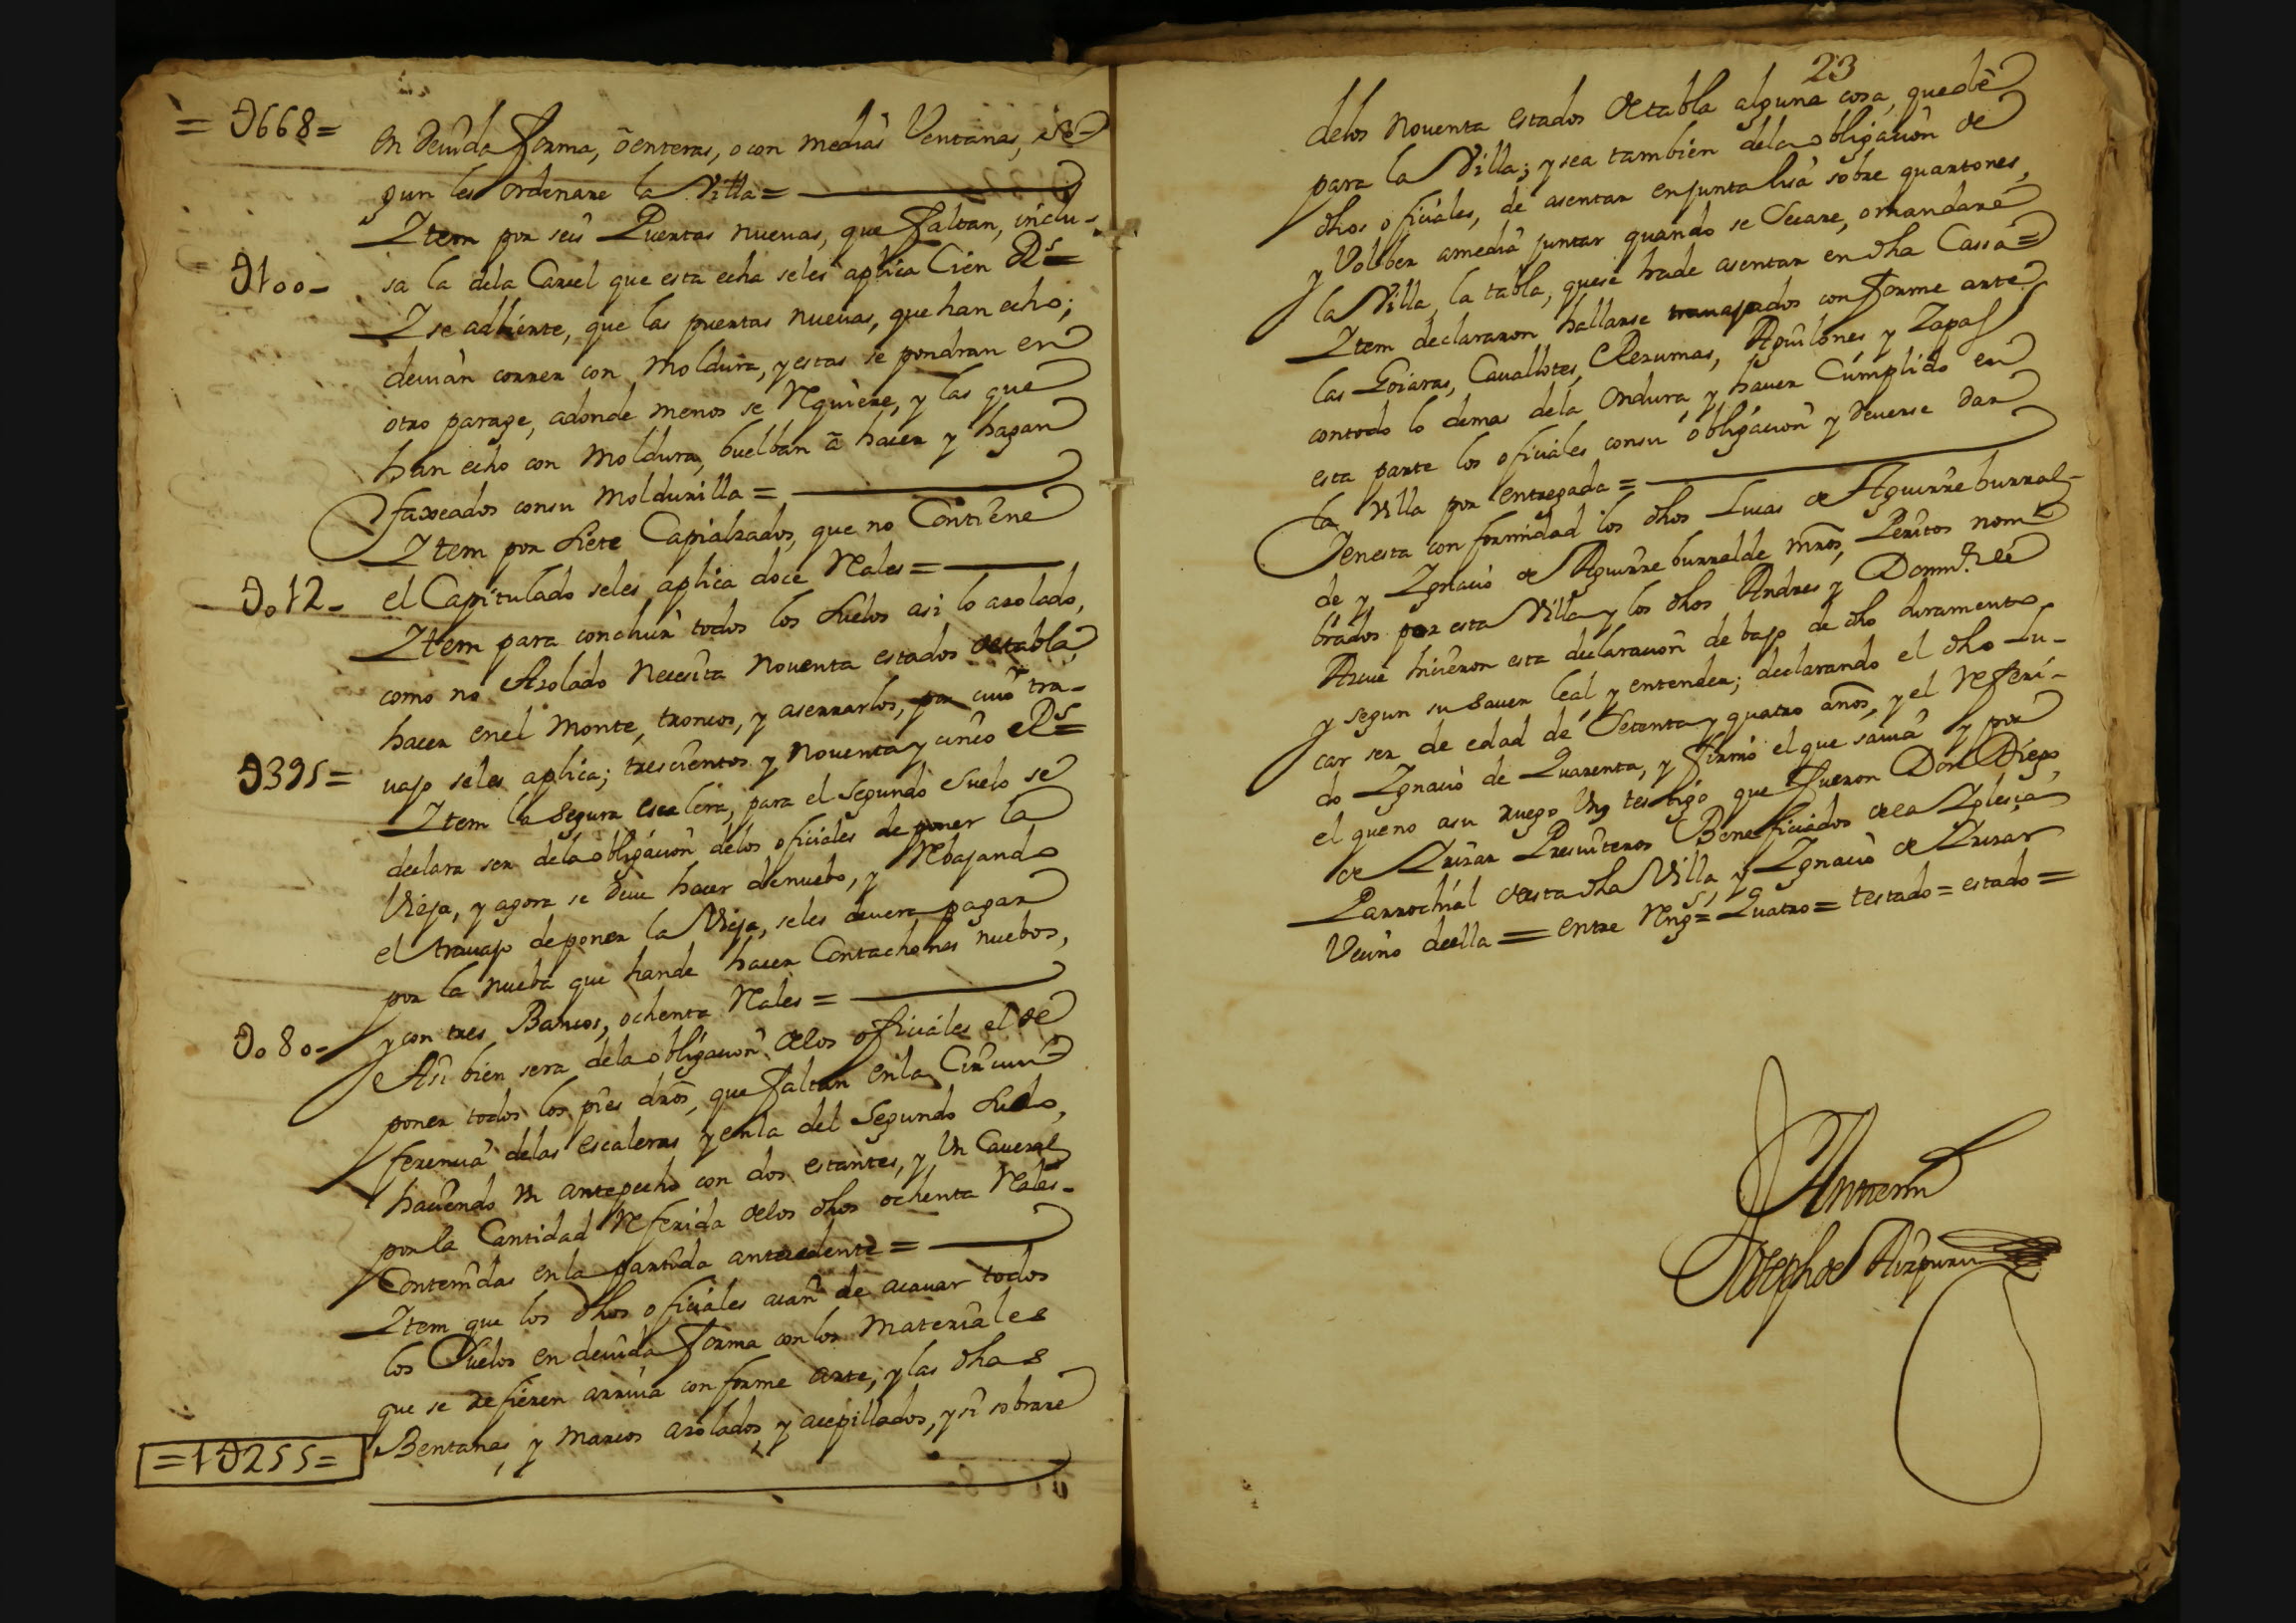 = U668=
en deuida forma, ò enteras, o con medias Ventanas, se-
gun les ordenare la Villa =
Ytem por seis Puertas nueuas, que faltan, inclu-
U100-
sa la dela Carcel que esta echa seles aplica Cien Rs=
Y se adbierte, que las puertas nueuas, que han echo;
deuian correr con moldura, y estas se pondran en
otro parage, adonde menos se Rquiere, y las que
han echo con moldura, buelban à hacer y hagan
faxeados consu moldurilla =
Ytem por siete Capialzados, que no Contiene
U012-
el Capitulado seles aplica doce Rales =
Ytem para concluir todos los suelos asi lo axolado,
como no Axolado necesita nouenta estados de tabla,
hacer enel monte, troncos, y aserrarlos, por cuio tra-
U395=
uajo seles aplica; trescientos y nouenta y cinco Rs=
Ytem la segura escalera, para el segundo suelo se
declara ser dela obligacion delos oficiales de poner la
Vieja, y agora se deue hacer de nuebo, y Rbajando
el trauajo de poner la Vieja, seles deuera pagar
por la nueba que hande hacer Contachones nuebos,
y con tres Bancos, ochenta Rales =
U080-
Asi bien sera dela obligacion delos oficiales el de
poner todos los pies dros, que faltan enla Circun-
ferencia delas escaleras y enla del segundo suelo,
haciendo un antepecho con dos estantes, y Un Caueral
por la Cantidad Rferida delos dhos ochenta Rales-
Contenidas enla partida antecedente =
Ytem que los dhos oficiales aian de acauar todos
los suelos en deuida forma con los materiales
que se refieren arriua conforme arte, y las dhas
Bentanas, y marcos axolados, y acepillados, y si sobrare
=1U255=
23
delos nouenta estados de tabla alguna cosa, quede
para la Villa; y sea tambien dela obligacion de
dhos oficiales, de asentar en junta lisa sobre quartones,
y Volber a media juntar quando se secare, o mandare
la Villa, la tabla, que se hade asentar en dha Cassa =
Ytem declararon hallarse trauajados conforme arte
las Goiaras, Cauallotes, Rezumas, Aguilones y Zapas
contodo lo demas dela Ondura, y hauer Cumplido en
esta parte los oficiales consu obligacion y deuerse dar
la Villa por entregada =
Y enesta conformidad los dhos Lucas de Aguirre burral-
de y Ygnacio de Aguirre burralde mros, Peritos nom-
brados por esta Villa y los dhos Andres y Domin.º de
Arcue hicieron esta declaracion de bajo de dho Juramento,
y segun su sauer leal y entender; declarando el dho Lu-
car ser de edad de setenta y quatro años, y el Referi-
do Ygnacio de Quarenta, y firmo el que sauia y por
el que no a su ruego Un testigo que fueron Don Diego
de Lrizar Presuiteros Beneficiados dela Yglesia
Parrochial desta dha Villa, y Ygnacio de Lrizar
Vecino deella = entre Rngs = Quatro = testado = estado =
Antemi
Joseph de Aizpuru